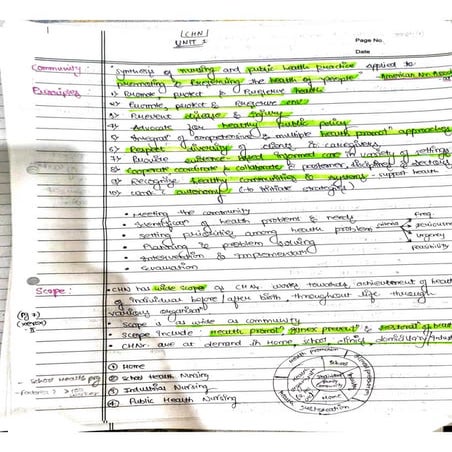 (CHN)
UNIT 1
Page No.
Date
Community "synthesis of nursing and public health practice applied to
promoting & preserving the health of people" - American Nr. Assoc
Principles 1) Promote protect & Preserve health
2) Promote, protect & Preserve env.
3) Prevent disease & injury
4) Advocate for healthy public policy
5) Integrat of comprehensive & multiple health promot approaches
6) Respect diversity of clients & caregivers
7) Provide evidence based informed care in variety of settings
8) Cooperate coordinate & collaborate
9) Recognize healthy communities & systems - support health
10) autonomy (- to initiate strategies)
• Meeting the community
of health problems & needs
• Setting priorities among health problem criteria
freq.
seriousness
urgency
feasibility
• Planning & problem solving
• Intervention & Implementat
• Evaluation
Scope: • CHN has wide scope of CHNr. works towards achievement of health
of Individual before/after birth, throughout life through
various organisat
• Scope is as wide as community
• Scope Include: Health promot, & of health
• CHNr. are at demand in Home, school, clinics, domiciliary/Indust
① Home
② School Health Nursing
③ Industrial Nursing
④ Public Health Nursing
- School Health prg
School
Home